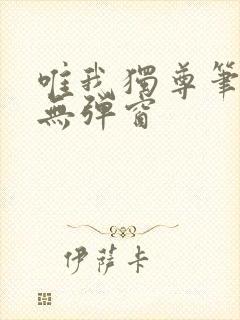 唯我獨尊筆
無彈窗
伊薩卡